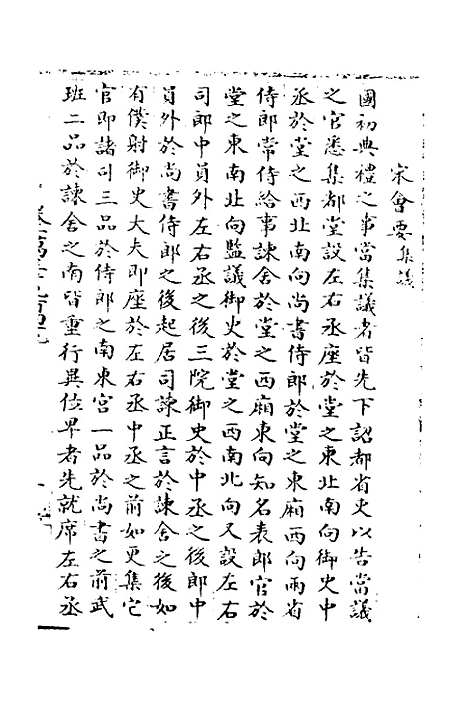 宋會要集議
國初典禮之事當集議者皆先下詔都省省吏以告當議
之官悉集都堂設左右丞座於堂之東北南向御史中
丞於堂之西北南向尚書侍郎於堂之東廂西向兩省
侍郎常侍給事諫舍於堂之西廂東向知名表郎官於
堂之東南北向監議御史於堂之西南北向又設左右
司郎中員外左右丞之後三院御史於中丞之後郎中
員外於尚書侍郎之後起居司諫正言於諫舍之後如
有僕射御史大夫即座於左右丞中丞之前如更集它
官即諸司三品於侍郎之南東宮一品於尚書之前武
班二品於諫舍之南皆重行異位卑者先就席左右丞